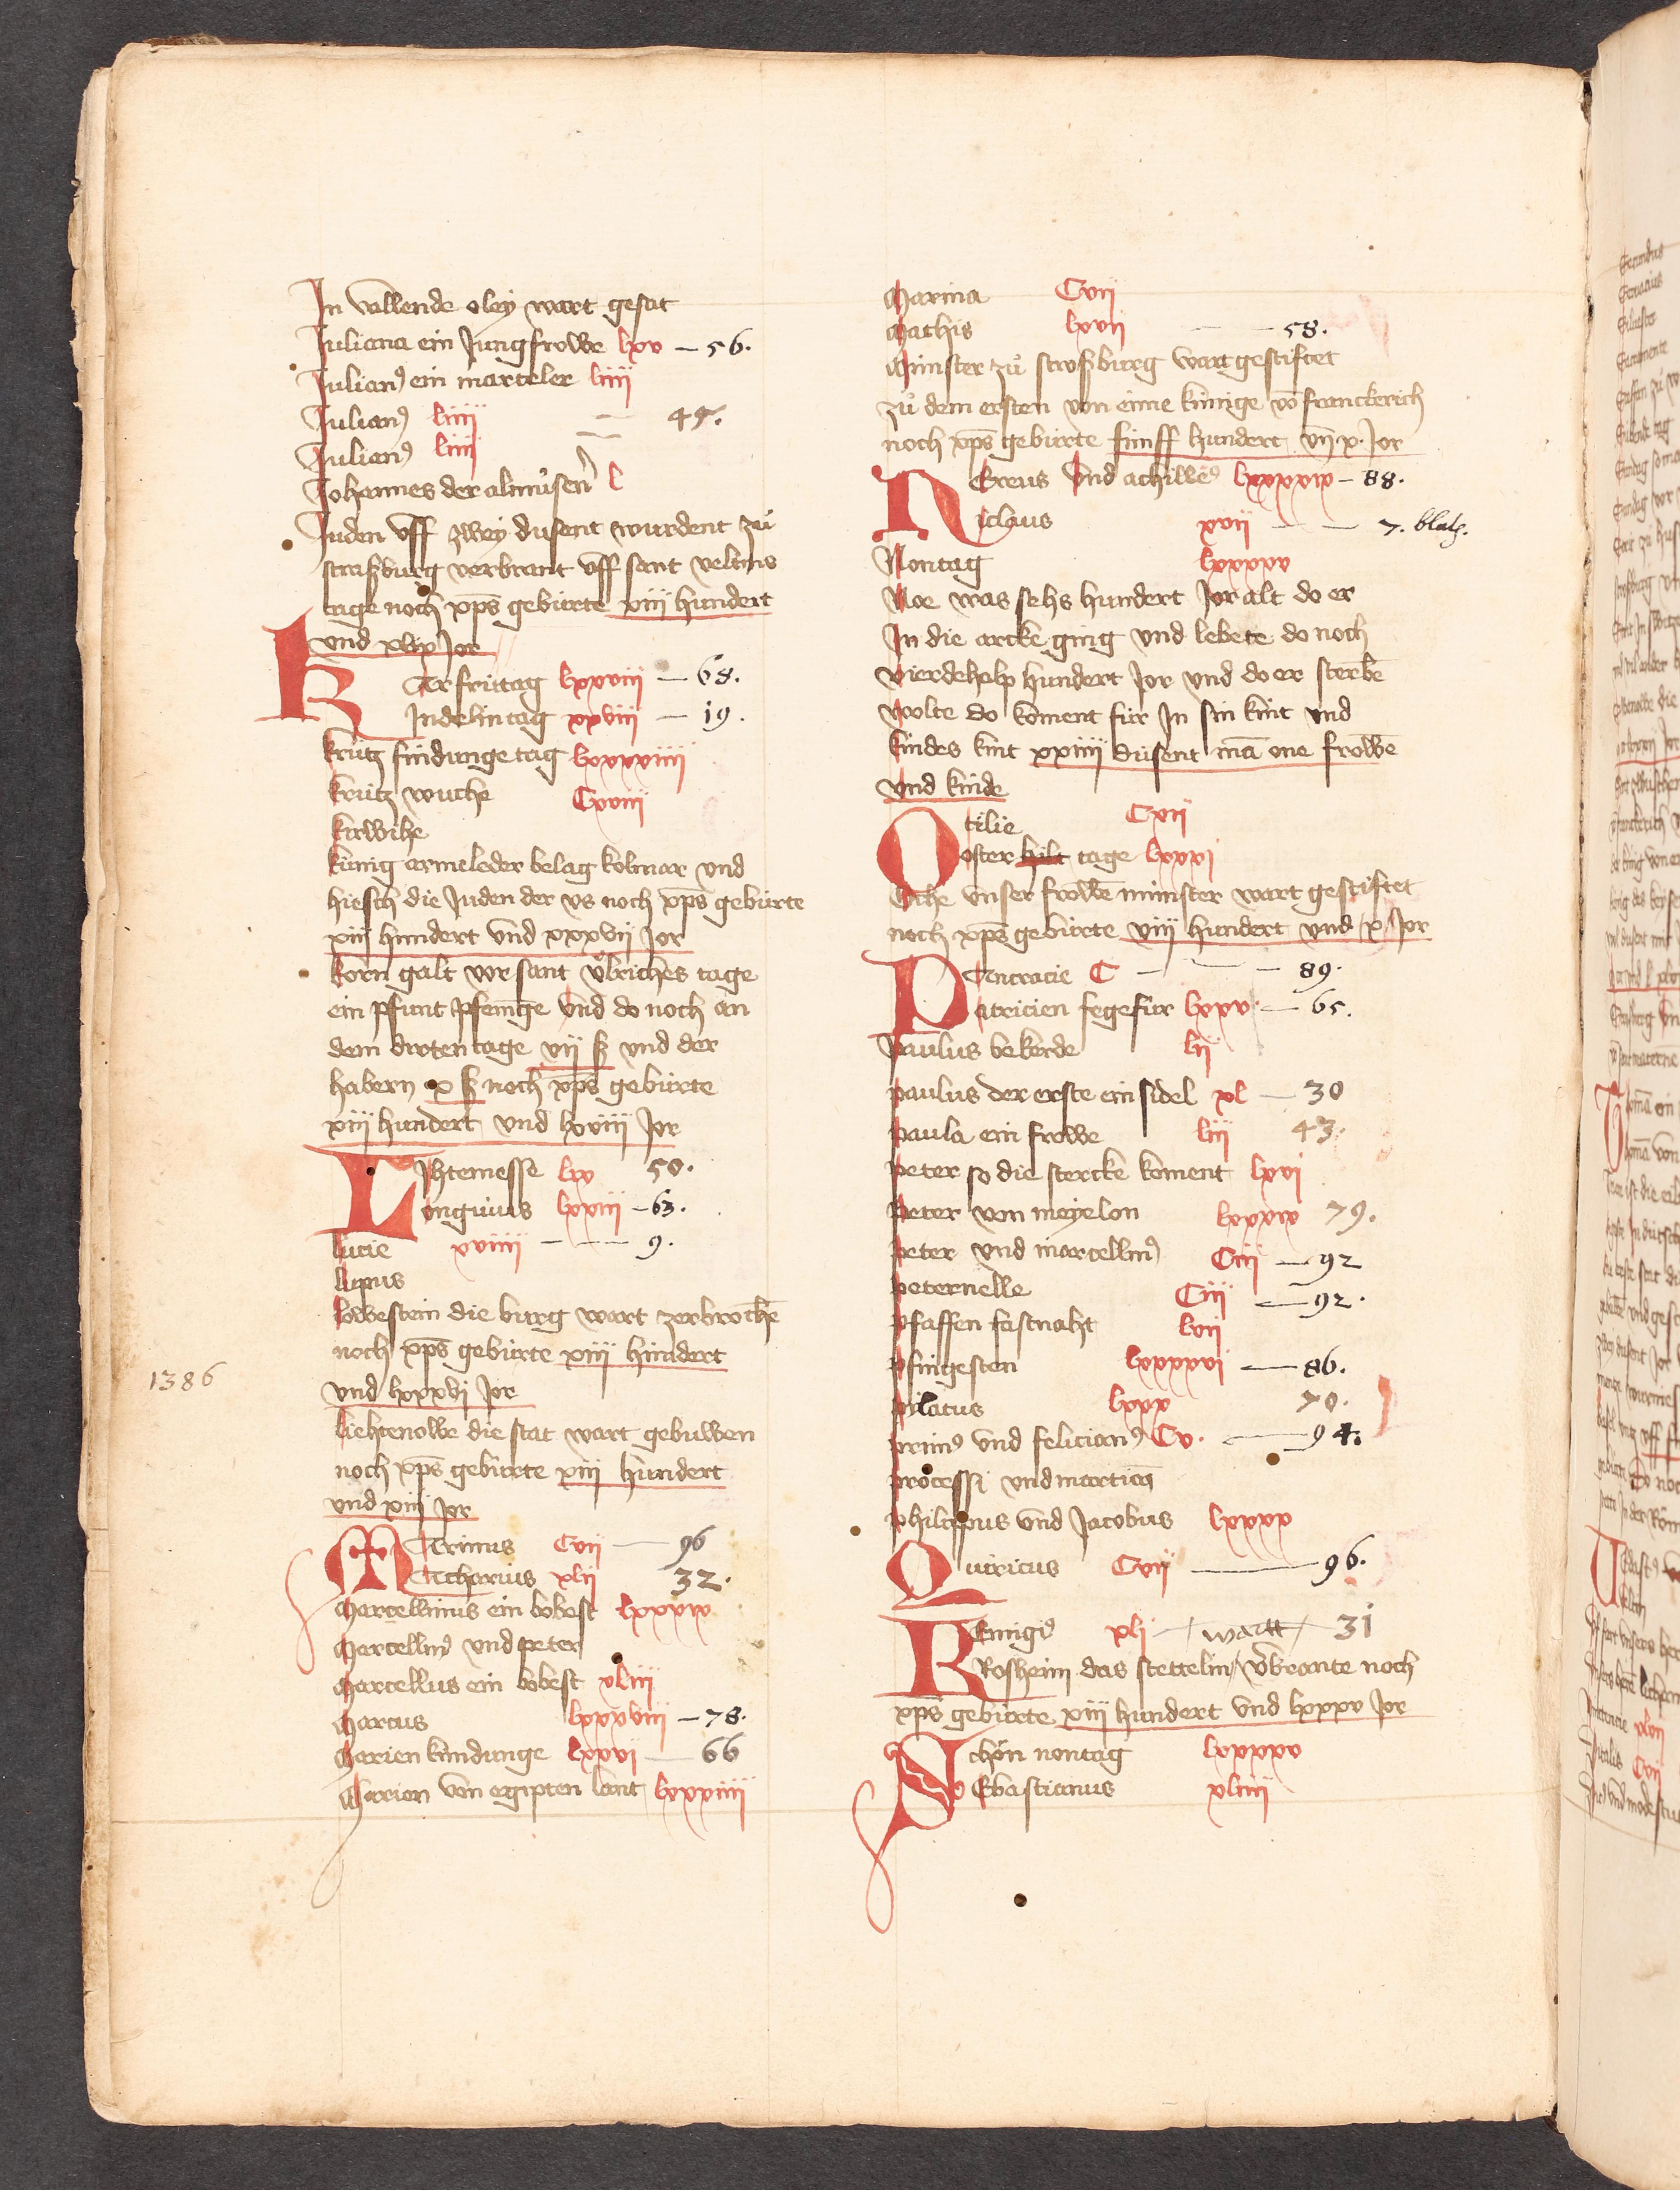 In wallende oley wart gesat
Juliana ein Jungfrowe lxv – 56.
Julianꝰ ein marteler liiii
Julianꝰ liiii — 45.
Julianꝰ liiii
Johannes der almůsener l
Juden vff zwey dusent wurdent zů
straßburg verbrant vff sant veltins
tage noch xp̄s gebürte xiii hundert
vnd xlix Jor
KErfritag lxxviii — 68.
Kindelintag xxviii — 19.
krütz findunge tag lxxxxiiii
krütz wuche Cxviii
kirwihe
künig armeleder belag kolmar vnd
hiesch die Juden der vs noch xp̄s gebürte
xiii hundert vnd xxxvii Jor
korn galt vor sant ůlriches tage
ein pfunt pfenn̄ge vnd do noch an
dem dirten tage vii ß vnd der
habern x ß noch xp̄s gebürte
xiii hundert vnd lxviiii Jor
LIhtemesse lxv 50.
Longinus lxxiii – 63.
lucie xviiii — 9.
lupus
lowestein die burg wart zerbrochē
noch xp̄s gebürte xiii hundert
1386
vnd lxxxvi Jor
liehtenowe die stat wart gebuwen
noch xp̄s gebürte xiii hundert
vnd xiii Jor
MErinus Cvii — 96
Matharius xlii 32.
Marcellinus ein bobest lxxxix
Marcellinꝰ vnd peter
Marcellus ein bobest xliii
Marcus lxxxviii – 78.
Marien kündunge lxxvi — 66
Marien von egipten lant lxxxiiii
Marina Cvii
Mathis lxvii — 58.
Minster zů stroßburg wart gestiftet
zů dem ersten von eime künige vō franckerich
noch xp̄s gebürte fünff hundert vn̄ x. Jor
NEreus vnd achilleꝰ lxxxxix – 88.
Niclaus xvii — 7. blatz.
Nontag lxxxxv
Noe was sehs hundert Jor alt do er
In die arcke ging vnd lebete do noch
vierdehalp hundert Jor vnd do er sterbē
wolte do koment für In sin kint vnd
kindes kint xxiiii dusent mā one frowē
vnd kinde
Otilie Cxii
Oster hilt tage lxxxi
Oche vnser frowē münster wart gestiftet
noch xp̄s gebürte viii hundert vnd x Jor
PEncracie C — 89.
Patricien fegefür lxxv. — 65.
Paulus bekerde lii
paulus der erste einsidel xl — 30
paula ein frowe liii 43.
peter so die stercke koment lxvi
Peter von meyelon lxxxix 79.
Peter vnd marcellinꝰ Ciii — 92
peternelle Ciii — 92.
Pfaffen fastnaht lvii
pfingesten lxxxxvi — 86.
pilatus lxxx 70.
primꝰ vnd felicianꝰ Cv. — 94.
processi vnd
philippus vnd Jacobus lxxxx
Quiricus Cvii — 96.
REmigiꝰ xli — wartt 31
Rosheim das stettelin v̄brante noch
xp̄s gebürte xiii hundert vnd lxxxv Jor
Schön nontag lxxxxv
SEbastianus xliiii